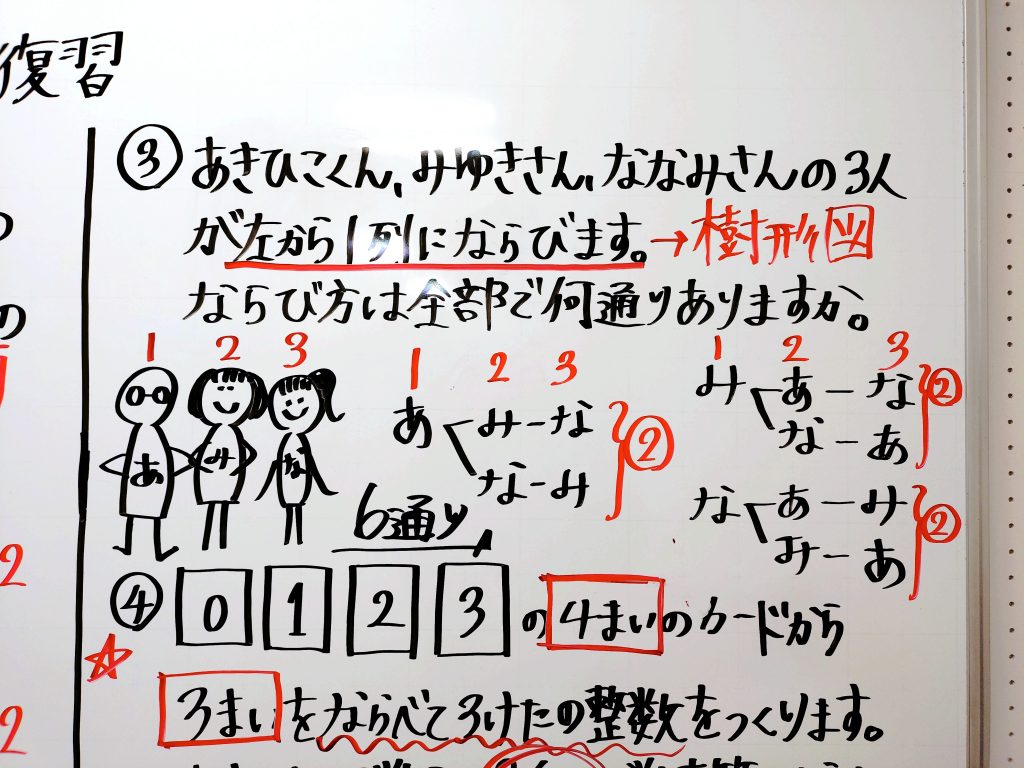 復習
③ あきひこくん、みゆきさん、ななみさんの3人
が左から1列にならびます。→樹形図
ならび方は全部で何通りありますか。
1 2 3
あ み な
1 2 3
あ み－な
な－み
②
6通り
1 2 3
み あ－な
な－あ
②
な あ－み
み－あ
②
④ 0 1 2 3 の4まいのカードから
3まいをならべて3けたの整数をつくります。
の
2
2